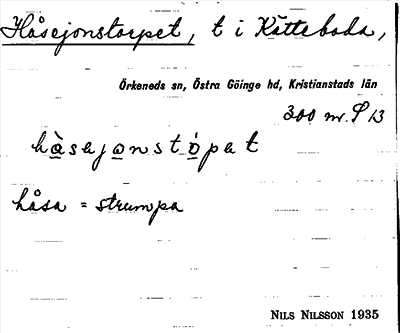 Håsejonstorpet, t i Kätteboda,
Örkeneds sn, Östra Göinge hd, Kristianstads län
300 m. S 13
hàsejonstópet
håsa = strumpa
NILS NILSSON 1935